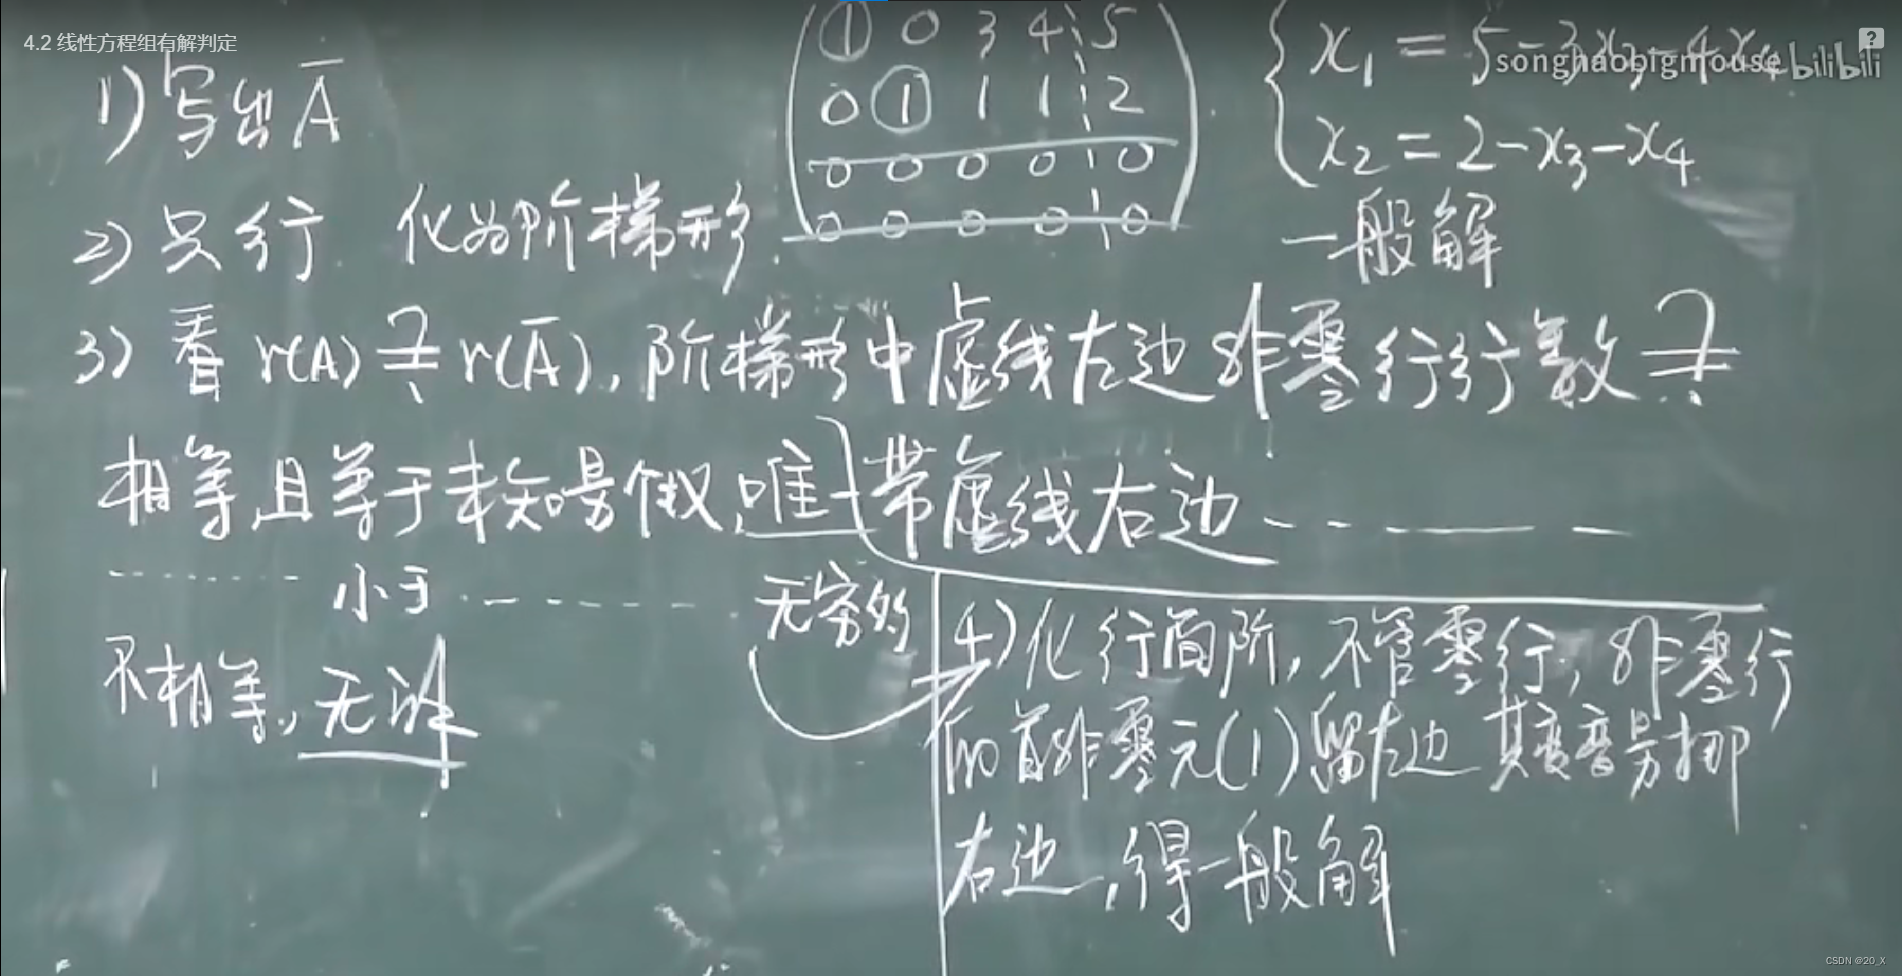 4.2 线性方程组有解判定
1) 写出 Ā
2) 只行 化为阶梯形
1 0 3 4 5
0 1 1 1 2
0 0 0 0 0
0 0 0 0 0
x₁ = 5-3x₃-4x₄
x₂ = 2-x₃-x₄
一般解
songhaobigmouse bilibili
?
3) 看 r(A) ?= r(Ā), 阶梯形中虚线左边非零行行数 ?=
带虚线右边 - - - — —
相等,且等于未知量个数,唯一
------ 小于 ------ 无穷多
不相等, 无解
4) 化行简阶, 不管零行, 非零行
的首非零元(1)留左边 其变量挪
右边, 得一般解
CSDN @20_X